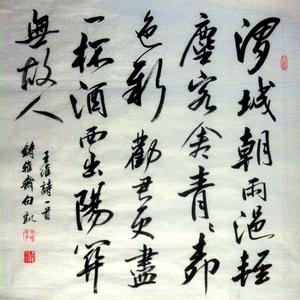 渭城朝雨浥輕
塵客舍青々柳
色新勸君更盡
一杯酒西出陽關
無故人
王維詩一首